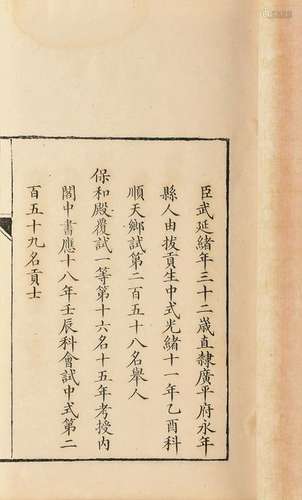 臣武延緒年三十二歲直隸廣平府永年
縣人由拔貢生中式光緒十一年乙酉科
順天鄉試第二百五十八名舉人
保和殿覆試一等第十六名十五年考授內
閣中書應十八年壬辰科會試中式第二
百五十九名貢士